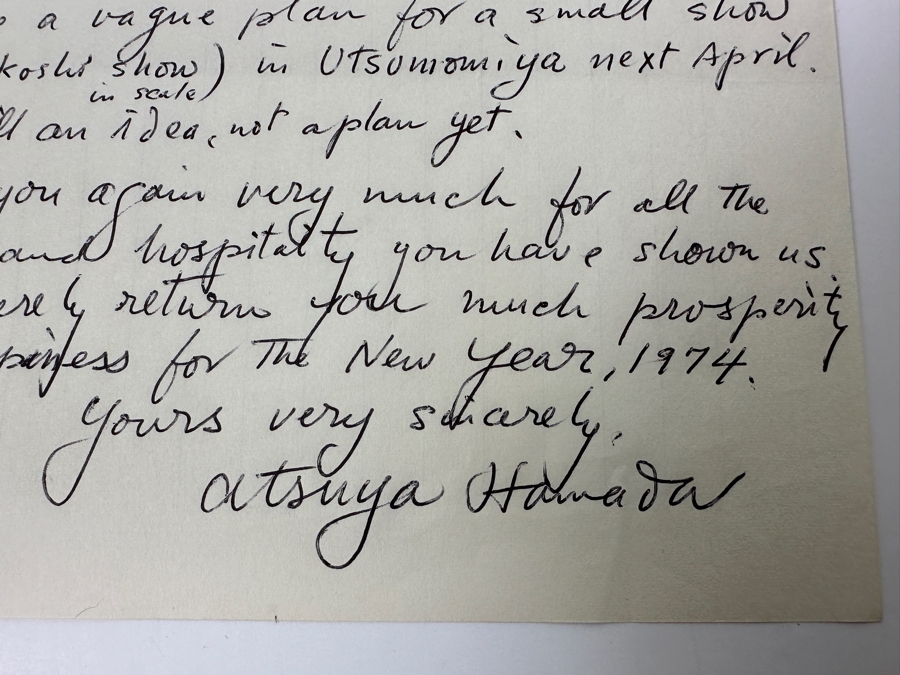 a vague plan for a small show
koshi show) in Utsunomiya next April.
in scale)
ll an idea, not a plan yet.
you again very much for all the
and hospitality you have shown us.
erely return you much prosperity
piness for the New Year, 1974.
Yours very sincerely,
Atsuya Hamada